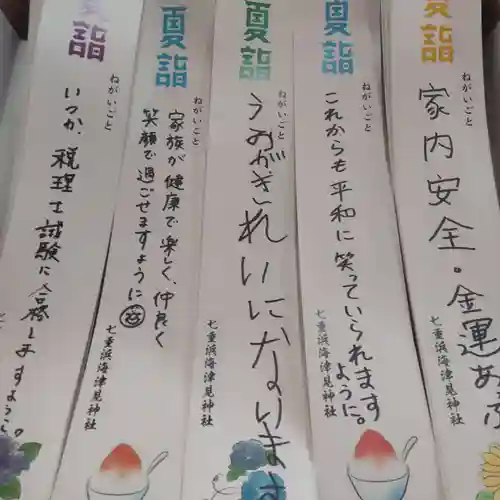 夏詣
ねがいごと
家内安全。金運あっぷ
七重浜海津見
夏詣
ねがいごと
これからも平和に笑っていられます
ように。
七重浜海津見神社
夏詣
ねがいごと
うみがきれいになります
七重浜海津見神社
夏詣
ねがいごと
家族が健康で楽しく、仲良く
笑顔で過ごせますように
七重浜海津見神社
夏詣
ねがいごと
いつか、税理士試験に合格しますように。